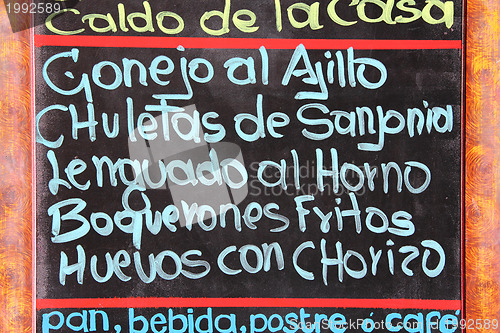 Caldo de la Casa
Conejo al Ajillo
CHuletas de Sanjonia
Lenguado al Horno
Boquerones Fritos
Huevos con CHorizo
pan, bebida, postre o café